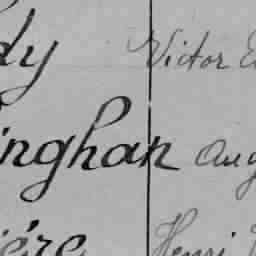 dy Victor E
inghan Aug
ière Henri